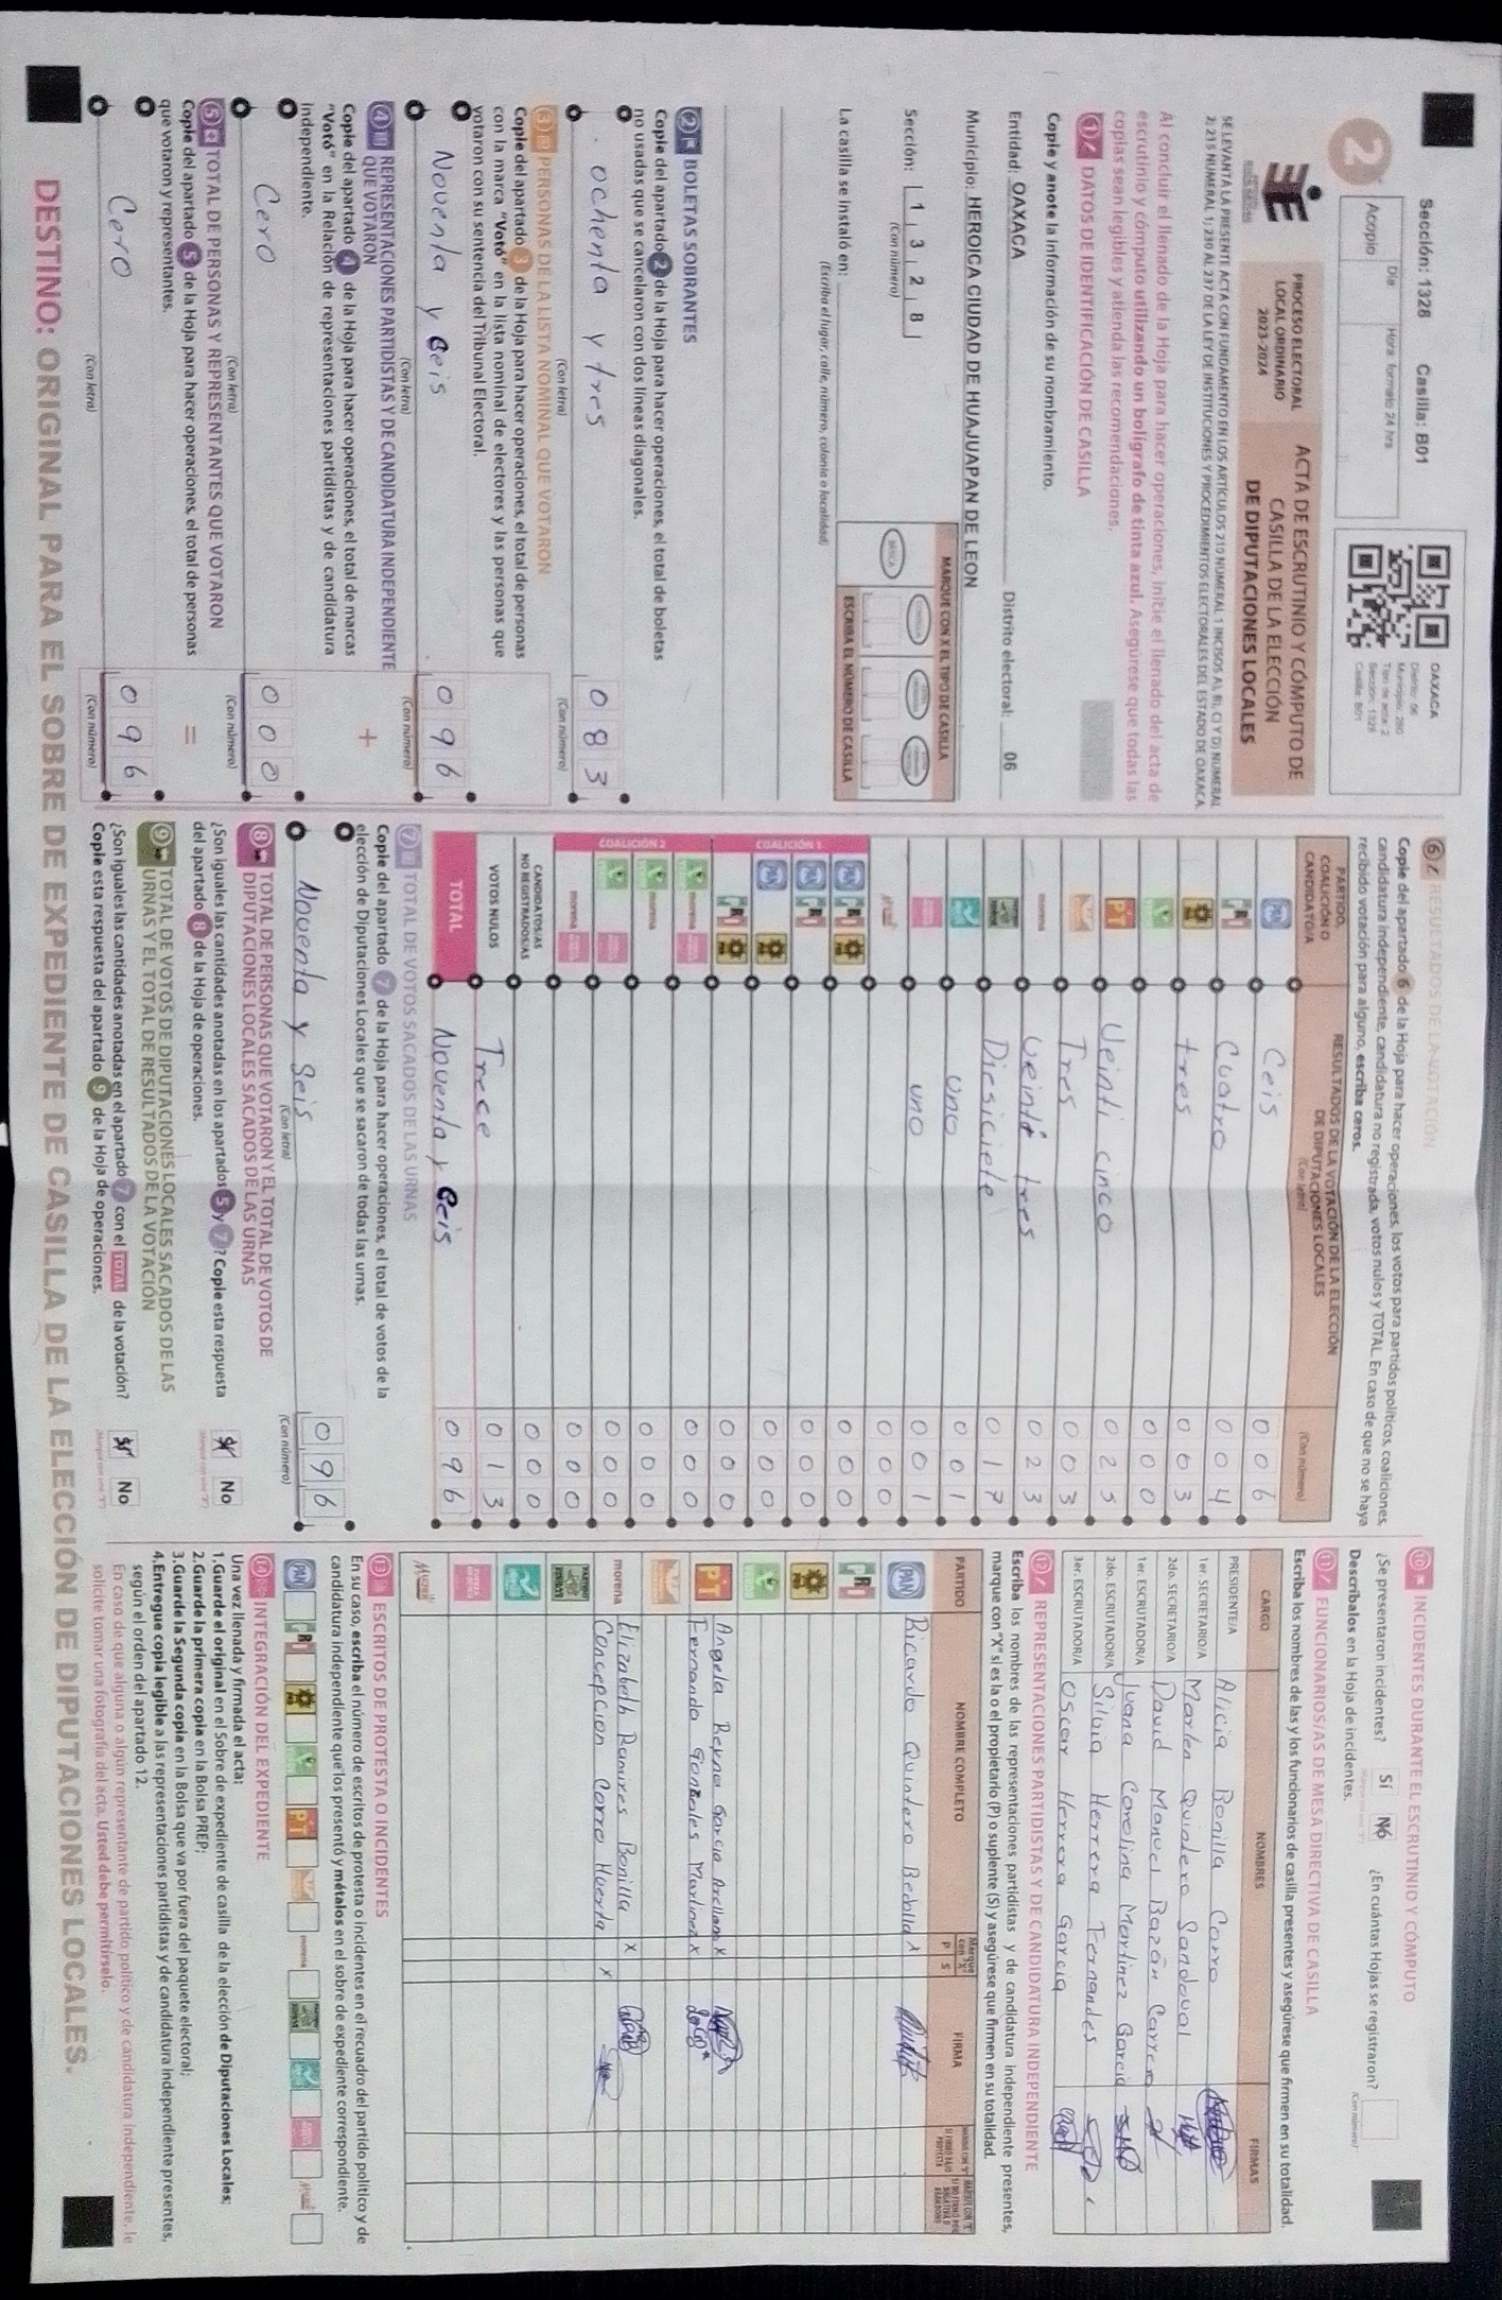 Sección: 1328 Casilla: B01
2
Acopio
Día Hora formato 24 hrs
OAXACA
Distrito: 06
Municipio: 280
Tipo de acta: 2
Sección: 1328
Casilla: B01
PROCESO ELECTORAL
LOCAL ORDINARIO
2023-2024
ACTA DE ESCRUTINIO Y CÓMPUTO DE
CASILLA DE LA ELECCIÓN
DE DIPUTACIONES LOCALES
SE LEVANTA LA PRESENTE ACTA CON FUNDAMENTO EN LOS ARTÍCULOS 210 NUMERAL 1 INCISOS A), B), C) Y D) NUMERAL
2; 215 NUMERAL 1; 230 AL 237 DE LA LEY DE INSTITUCIONES Y PROCEDIMIENTOS ELECTORALES DEL ESTADO DE OAXACA.
Al concluir el llenado de la Hoja para hacer operaciones, inicie el llenado del acta de
escrutinio y cómputo utilizando un bolígrafo de tinta azul. Asegúrese que todas las
copias sean legibles y atienda las recomendaciones.
1 DATOS DE IDENTIFICACIÓN DE CASILLA
Copie y anote la información de su nombramiento.
Entidad: OAXACA Distrito electoral: 06
Municipio: HEROICA CIUDAD DE HUAJUAPAN DE LEON
Sección: 1 3 2 8
(Con número)
MARQUE CON X EL TIPO DE CASILLA
BÁSICA
ESCRIBA EL NÚMERO DE CASILLA
La casilla se instaló en:
(Escriba el lugar, calle, número, colonia o localidad)
2 BOLETAS SOBRANTES
Copie del apartado 2 de la Hoja para hacer operaciones, el total de boletas
no usadas que se cancelaron con dos líneas diagonales.
ochenta y tres 0 8 3
(Con letra) (Con número)
3 PERSONAS DE LA LISTA NOMINAL QUE VOTARON
Copie del apartado 3 de la Hoja para hacer operaciones, el total de personas
con la marca "Votó" en la lista nominal de electores y las personas que
votaron con su sentencia del Tribunal Electoral.
Noventa y ceis 0 9 6
(Con letra) (Con número)
4 REPRESENTACIONES PARTIDISTAS Y DE CANDIDATURA INDEPENDIENTE
QUE VOTARON
Copie del apartado 4 de la Hoja para hacer operaciones, el total de marcas
"Votó" en la Relación de representaciones partidistas y de candidatura
independiente.
+
Cero 0 0 0
(Con letra) (Con número)
5 TOTAL DE PERSONAS Y REPRESENTANTES QUE VOTARON
Copie del apartado 5 de la Hoja para hacer operaciones, el total de personas
que votaron y representantes.
=
Cero 0 9 6
(Con letra) (Con número)
6 RESULTADOS DE LA VOTACIÓN
Copie del apartado 6 de la Hoja para hacer operaciones, los votos para partidos políticos, coaliciones,
candidatura independiente, candidatura no registrada, votos nulos y TOTAL. En caso de que no se haya
recibido votación para alguno, escriba ceros.
PARTIDO,
COALICIÓN O
CANDIDATO/A
RESULTADOS DE LA VOTACIÓN DE LA ELECCIÓN
DE DIPUTACIONES LOCALES
(Con letra) (Con número)
PAN Ceis 0 0 6
PRI Cuatro 0 0 4
PRD tres 0 0 3
0 0 0
PT Veinti cinco 0 2 5
Tres 0 0 3
morena Veinti trees 0 2 3
Diesiciete 0 1 7
uno 0 0 1
uno 0 0 1
0 0 0
COALICIÓN 1
PAN PRI PRD 0 0 0
PAN PRI 0 0 0
PAN PRD 0 0 0
PRI PRD 0 0 0
COALICIÓN 2
morena 0 0 0
morena 0 0 0
0 0 0
morena 0 0 0
CANDIDATOS/AS
NO REGISTRADOS/AS 0 0 0
VOTOS NULOS Trece 0 1 3
TOTAL Noventa y ceis 0 9 6
7 TOTAL DE VOTOS SACADOS DE LAS URNAS
Copie del apartado 7 de la Hoja para hacer operaciones, el total de votos de la
elección de Diputaciones Locales que se sacaron de todas las urnas.
Noventa y Seis 0 9 6
(Con letra) (Con número)
8 TOTAL DE PERSONAS QUE VOTARON Y EL TOTAL DE VOTOS DE
DIPUTACIONES LOCALES SACADOS DE LAS URNAS
¿Son iguales las cantidades anotadas en los apartados 5 y 7? Copie esta respuesta
del apartado 8 de la Hoja de operaciones.
Sí No
9 TOTAL DE VOTOS DE DIPUTACIONES LOCALES SACADOS DE LAS
URNAS Y EL TOTAL DE RESULTADOS DE LA VOTACIÓN
¿Son iguales las cantidades anotadas en el apartado 7 con el TOTAL de la votación?
Copie esta respuesta del apartado 9 de la Hoja de operaciones.
Sí No
10 INCIDENTES DURANTE EL ESCRUTINIO Y CÓMPUTO
¿Se presentaron incidentes? Sí No ¿En cuántas Hojas se registraron?
(Con número)
Descríbalos en la Hoja de incidentes.
11 FUNCIONARIOS/AS DE MESA DIRECTIVA DE CASILLA
Escriba los nombres de las y los funcionarios de casilla presentes y asegúrese que firmen en su totalidad.
CARGO NOMBRES FIRMAS
PRESIDENTE/A Alicia Bonilla Corro
1er. SECRETARIO/A Marlen Quintero Sandoval
2do. SECRETARIO/A David Manuel Bazán Carrera
1er. ESCRUTADOR/A Juana Carolina Martinez Garcia
2do. ESCRUTADOR/A Silvia Herrera Fernandes
3er. ESCRUTADOR/A Oscar Herrera Garcia
12 REPRESENTACIONES PARTIDISTAS Y DE CANDIDATURA INDEPENDIENTE
Escriba los nombres de las representaciones partidistas y de candidatura independiente presentes,
marque con "X" si es la o el propietario (P) o suplente (S) y asegúrese que firmen en su totalidad.
PARTIDO NOMBRE COMPLETO Marque con "X" P S FIRMA
PAN Ricardo Quintero Bedolla X
PRI
PRD
PT Angela Reyna Garcia Arellano X
Fernando Gonzales Martinez X
morena Elizabeth Ramires Bonilla X
Concepcion Corro Huerta X
13 ESCRITOS DE PROTESTA O INCIDENTES
En su caso, escriba el número de escritos de protesta o incidentes en el recuadro del partido político y de
candidatura independiente que los presentó y métalos en el sobre de expediente correspondiente.
PAN PRI PRD PT morena
14 INTEGRACIÓN DEL EXPEDIENTE
Una vez llenada y firmada el acta:
1.Guarde el original en el Sobre de expediente de casilla de la elección de Diputaciones Locales;
2.Guarde la primera copia en la Bolsa PREP;
3.Guarde la Segunda copia en la Bolsa que va por fuera del paquete electoral;
4.Entregue copia legible a las representaciones partidistas y de candidatura independiente presentes,
según el orden del apartado 12.
En caso de que alguna o algún representante de partido político y de candidatura independiente, le
solicite tomar una fotografía del acta, Usted debe permitírselo.
DESTINO: ORIGINAL PARA EL SOBRE DE EXPEDIENTE DE CASILLA DE LA ELECCIÓN DE DIPUTACIONES LOCALES.